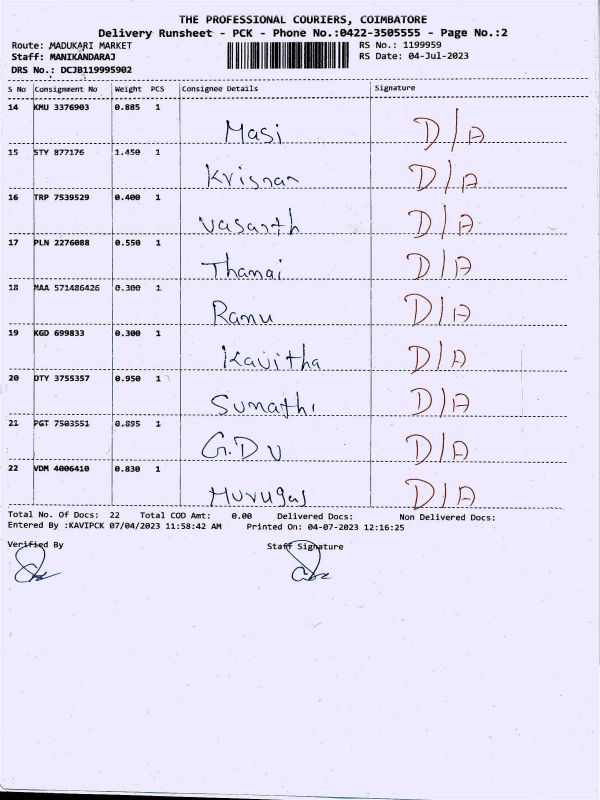 THE PROFESSIONAL COURIERS, COIMBATORE
Delivery Runsheet - PCK - Phone No.:0422-3505555 - Page No.:2
Route: MADUKARI MARKET RS No.: 1199959
Staff: MANIKANDARAJ RS Date: 04-Jul-2023
DRS No.: DCJB119995902
S No Consignment No Weight PCS Consignee Details Signature
14 KMU 3376903 0.885 1 Masi D/A
15 STY 877176 1.450 1 Krisnan D/A
16 TRP 7539529 0.400 1 Vasanth D/A
17 PLN 2276088 0.550 1 Thanai D/A
18 MAA 571486426 0.300 1 Ramu D/A
19 KGD 699833 0.300 1 Kavitha D/A
20 DTY 3755357 0.950 1 Sumathi D/A
21 PGT 7503551 0.895 1 G.D U D/A
22 VDM 4006410 0.830 1 Murugas D/A
Total No. Of Docs: 22 Total COD Amt: 0.00 Delivered Docs: Non Delivered Docs:
Entered By :KAVIPCK 07/04/2023 11:58:42 AM Printed On: 04-07-2023 12:16:25
Verified By Staff Signature